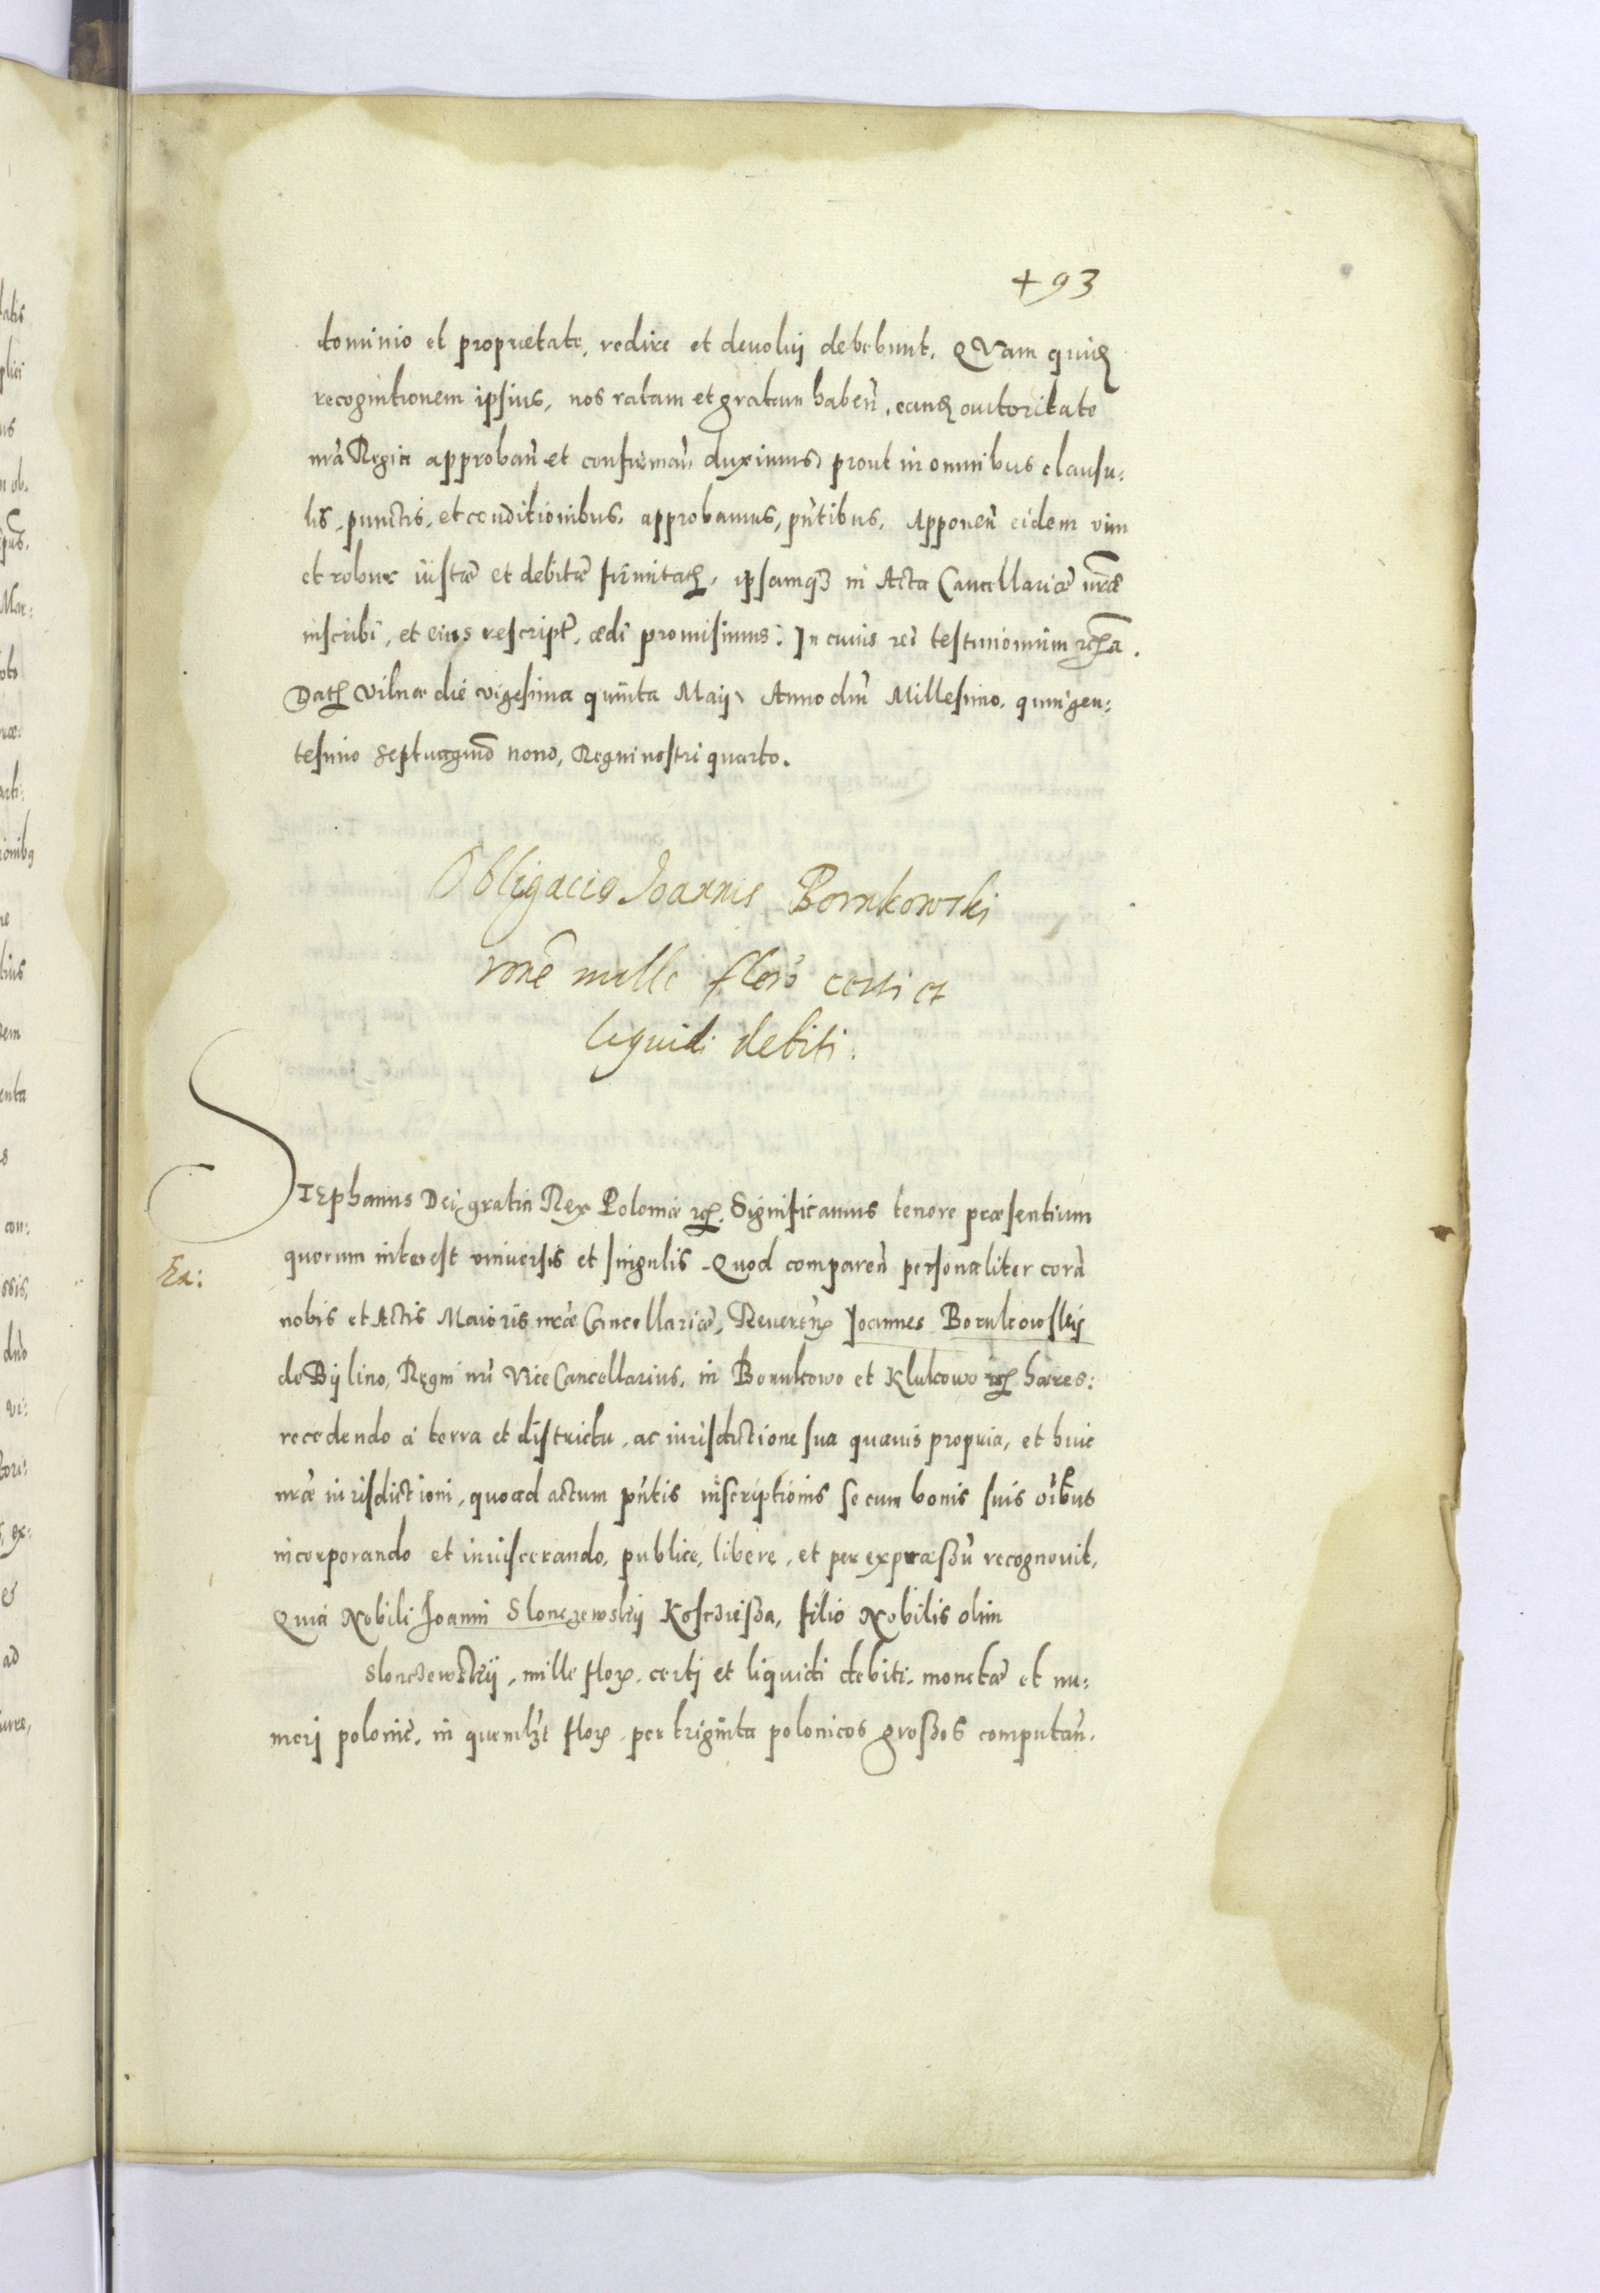 + 93
dominio et proprietate, redire et deuoluj debebunt. QVam quid
recognitionem ipsius, nos ratam et gratam haben̄, eand autoritate
nr̄a Regia approban̄ et confirman̄ duximus, prout in omnibus clausu:
lis, punctis, et conditionibus, approbamus, pn̄tibus. Apponen̄ eidem vim
et robur iustæ et debitæ firmitatis, ipsamq3 in Acta Cancellariæ nr̄æ
inscribi, et eius rescript̄. ædi promisimus. In cuius rei testimonium
Dat Vilnæ die vigesima quinta Maij, Anno dn̄i Millesimo, quingen:
tesimo septuagmō nono, Regni nostri quarto.
Obligacio Joannis Bornkowski
rōnē mille flor̄ certi et
liquidi debiti.
STEphanus Dei gratia Rex Poloniæ Significamus tenore præsentium
quorum interest vniuersis et singulis. Quod comparen̄ personaliter corā
Ex:
nobis et Actis Maioris nr̄æ Cancellariæ, Reueren̄ Joannes Borukowskij
de Bijlino, Regni nr̄i ViceCancellarius, in Borukowo et Klukowo hæres:
recedendo à terra et districtu, ac iurisdictione sua quauis propria, et huic
nr̄æ iurisdictioni, quoad actum pn̄tis inscriptionis se cum bonis suis oībus
incorporando et inuiscerando, publice, libere, et per expræßū recognouit,
Quia Nobili Joanni Slonczewskij filio Nobilis olim
Slonczewskij, mille flor. certj et liquidi debiti, monetæ et nu:
merj polonic̄, in quemlz̄t flor. per triginta polonicos großos computan̄.